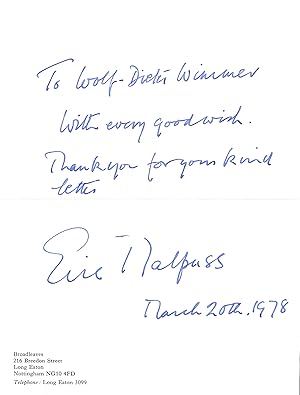 To Wolf-Dieter Wimmer
With every good wish.
Thank you for your kind
letter
Eric Malpass
March 20th. 1978
Broadleaves
216 Breedon Street
Long Eaton
Nottingham NG10 4FD
Telephone / Long Eaton 3099